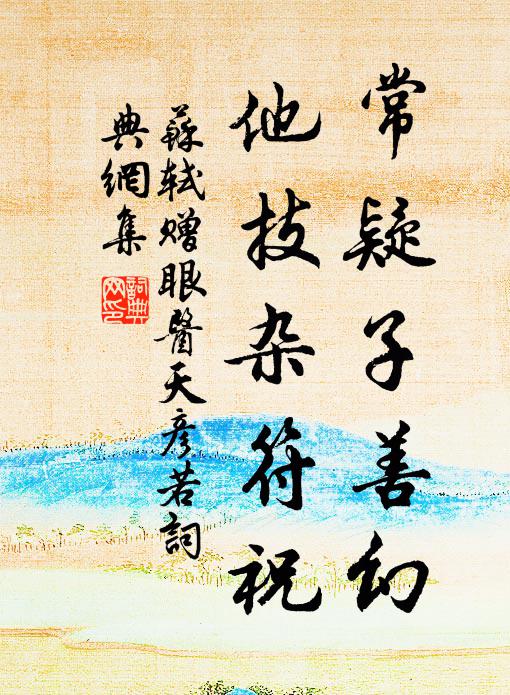 常疑子善幻
他技杂符祝
蘇軾贈眼醫天彦若詞
典網集
詞典
网印